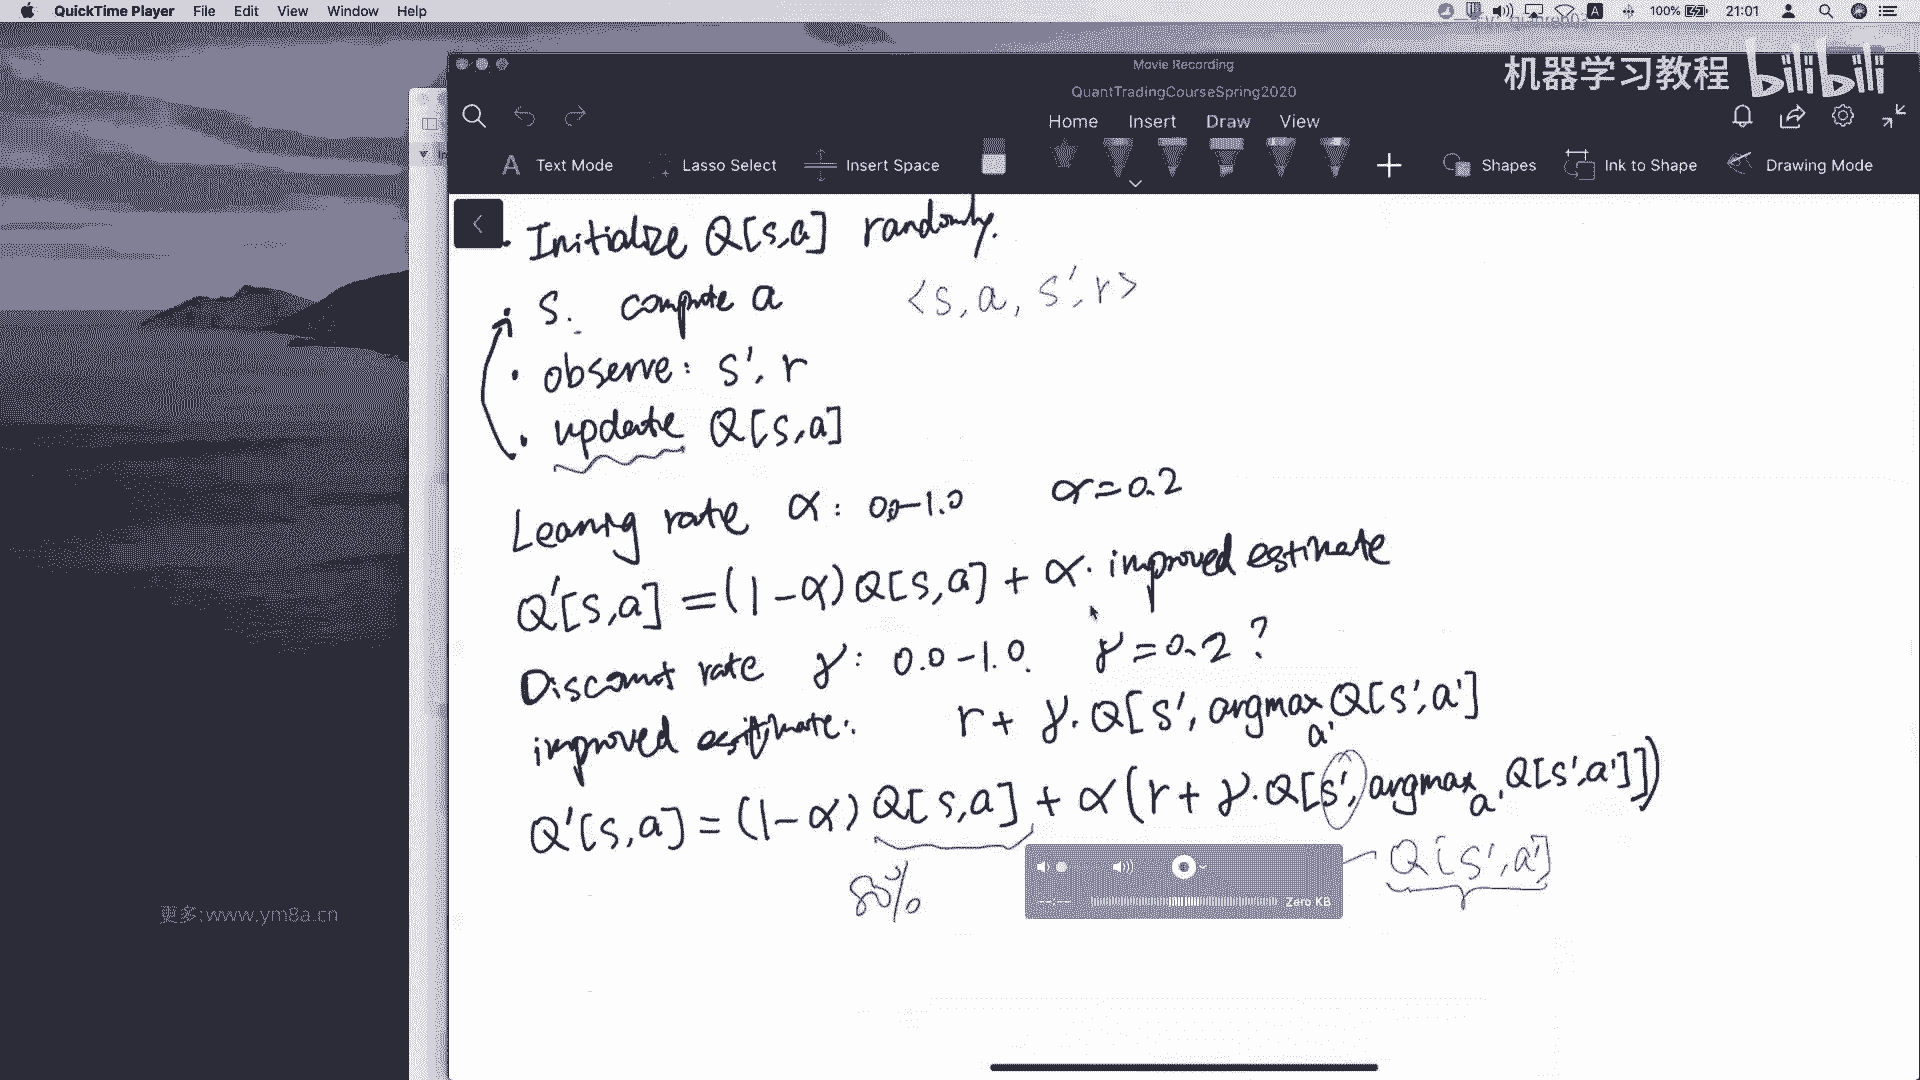 QuickTime Player File Edit View Window Help
100% 21:01
机器学习教程 bilibili
Movie Recording
QuantTradingCourseSpring2020
Home Insert Draw View
Text Mode Lasso Select Insert Space Shapes Ink to Shape Drawing Mode
· Initialize Q[s,a] randomly.
· S. compute a <s,a,s',r>
· observe: s'. r
· update Q[s,a]
Learning rate α: 0.0-1.0 α=0.2
Q'[s,a] = (1-α) Q[s,a] + α· improved estimate
Discount rate γ: 0.0-1.0. γ=0.2?
improved estimate: r + γ. Q[s', argmax a' Q[s',a']
Q'[s,a] = (1-α) Q[s,a] + α(r + γ.Q[s', argmax a' Q[s',a']])
Q[s',a']
80%
--:-- Zero KB
更多:www.ym8a.cn